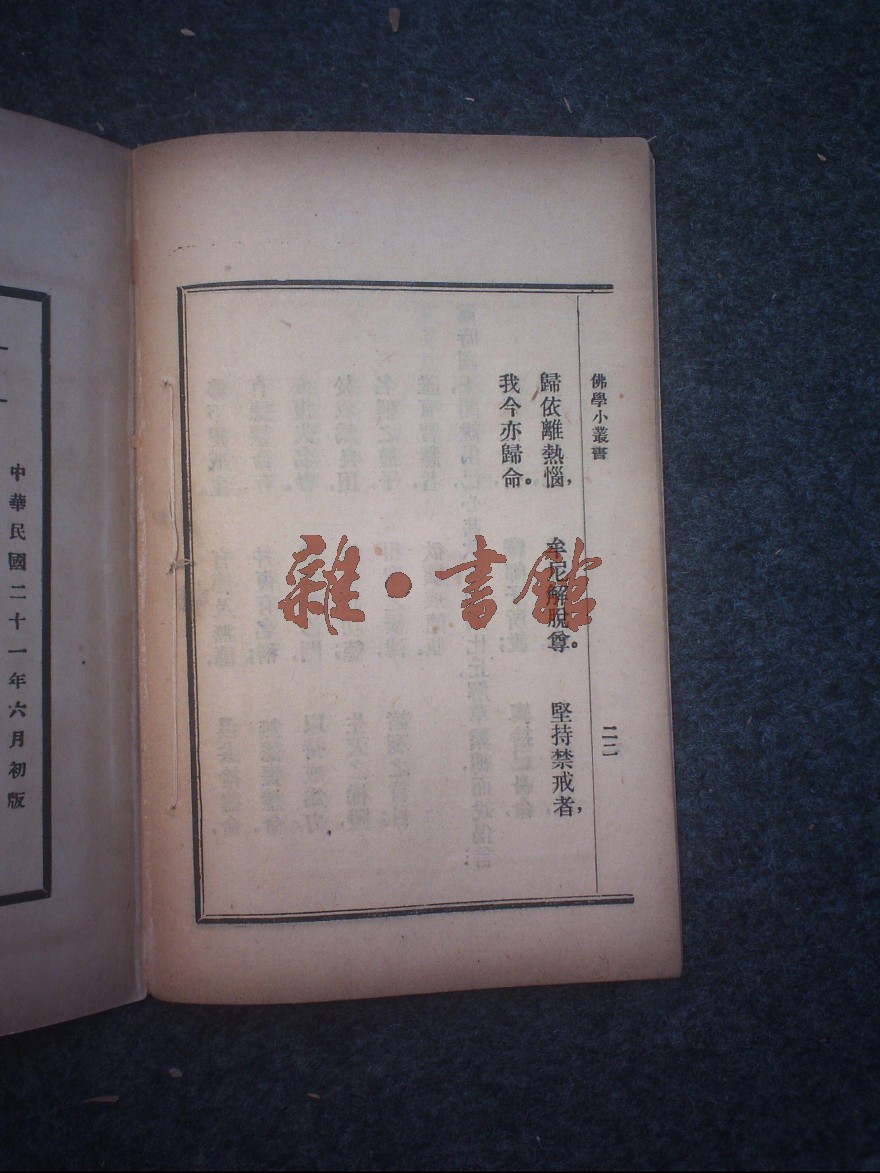 佛學小叢書
二二
歸依離熱惱, 牟尼解脫尊。 堅持禁戒者,
我今亦歸命。
雜·書館
中華民國二十一年六月初版